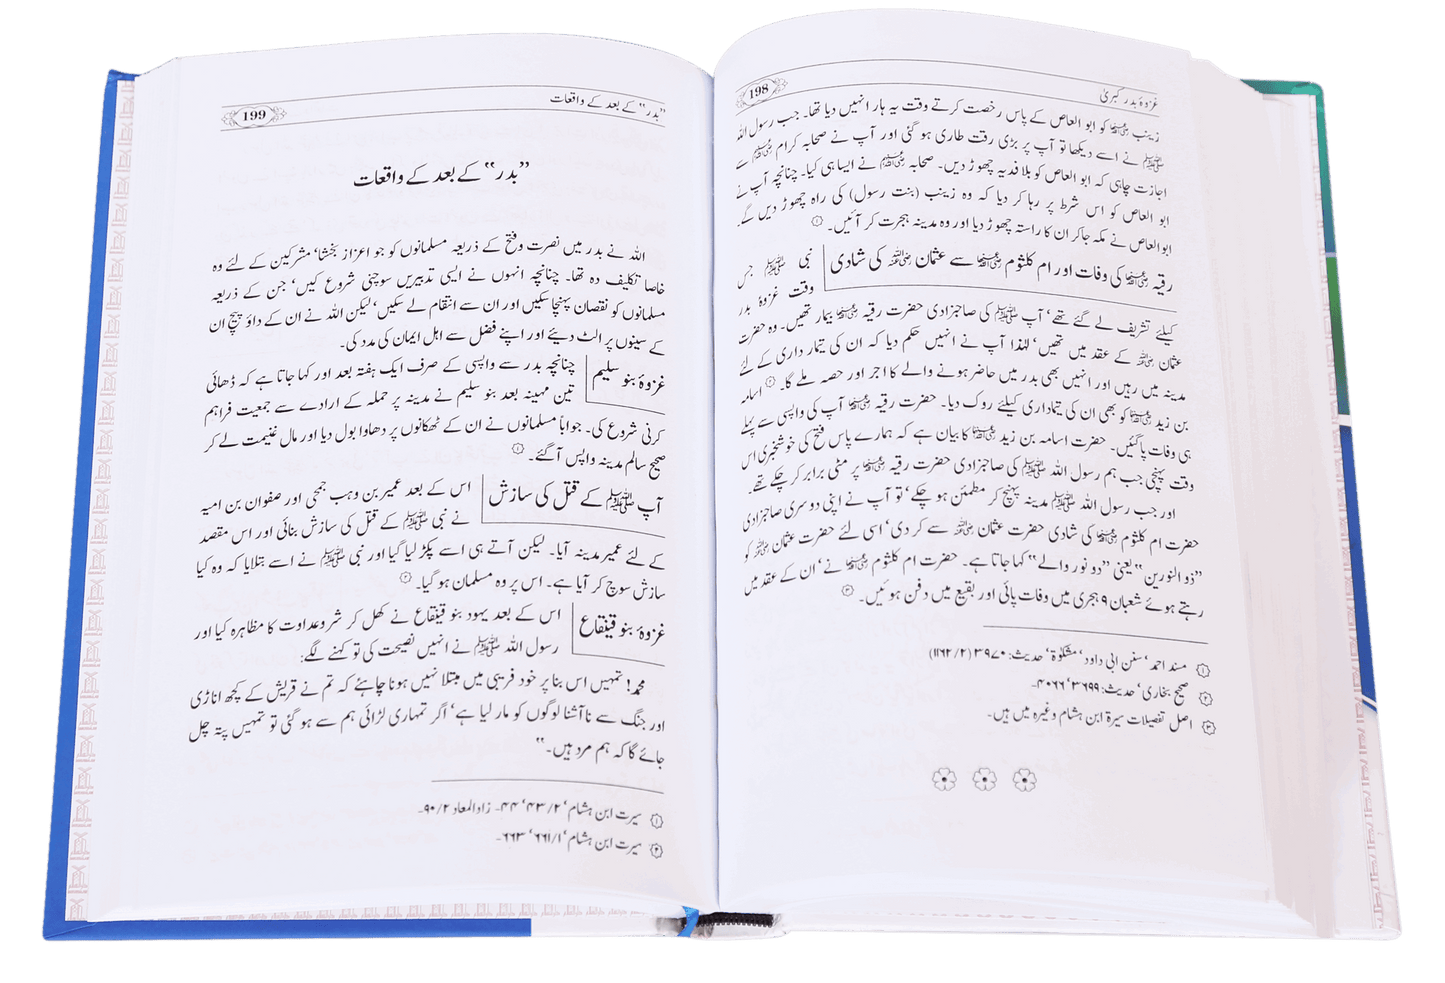 198
غزوۂ بدر کبریٰ
زینب رضی اللہ عنہا کو ابو العاص کے پاس رخصت کرتے وقت یہ ہار انہیں دیا تھا۔ جب رسول اللہ
ﷺ نے اسے دیکھا تو آپ پر بڑی رقت طاری ہو گئی اور آپ نے صحابہ کرام رضی اللہ عنہم سے
اجازت چاہی کہ ابو العاص کو بلا فدیہ چھوڑ دیں۔ صحابہ رضی اللہ عنہم نے ایسا ہی کیا۔ چنانچہ آپ نے
ابو العاص کو اس شرط پر رہا کر دیا کہ وہ زینب (بنت رسول) کی راہ چھوڑ دیں گے۔
ابوالعاص نے مکہ جاکر ان کا راستہ چھوڑ دیا اور وہ مدینہ ہجرت کر آئیں۔ ①
رقیہ رضی اللہ عنہا کی وفات اور ام کلثوم رضی اللہ عنہا سے عثمان رضی اللہ عنہ کی شادی
نبی ﷺ جس
وقت غزوۂ بدر
کیلئے تشریف لے گئے تھے‘ آپ ﷺ کی صاجزادی حضرت رقیہ رضی اللہ عنہا بیمار تھیں۔ وہ حضرت
عثمان رضی اللہ عنہ کے عقد میں تھیں‘ لہٰذا آپ نے انہیں حکم دیا کہ ان کی تیمار داری کے لئے
مدینہ میں رہیں اور انہیں بھی بدر میں حاضر ہونے والے کا اجر اور حصہ ملے گا۔ ② اسامہ
بن زید رضی اللہ عنہ کو بھی ان کی تیماداری کیلئے روک دیا۔ حضرت رقیہ رضی اللہ عنہا آپ کی واپسی سے پہلے
ہی وفات پاگئیں۔ حضرت اسامہ بن زید رضی اللہ عنہ کا بیان ہے کہ ہمارے پاس فتح کی خوشخبری اس
وقت پہنچی جب ہم رسول اللہ ﷺ کی صاجزادی حضرت رقیہ رضی اللہ عنہا پر مٹی برابر کر چکے تھے۔
اور جب رسول اللہ ﷺ مدینہ پہنچ کر مطمئن ہو چکے‘ تو آپ نے اپنی دوسری صاجزادی
حضرت ام کلثوم رضی اللہ عنہا کی شادی حضرت عثمان رضی اللہ عنہ سے کر دی‘ اسی لئے حضرت عثمان رضی اللہ عنہ کو
”ذو النورین“ یعنی ”دو نور والے“ کہا جاتا ہے۔ حضرت ام کلثوم رضی اللہ عنہا نے‘ ان کے عقد میں
رہتے ہوئے شعبان ۹ ہجری میں وفات پائی اور بقیع میں دفن ہوئیں۔ ③
① مسند احمد‘ سنن ابی داود‘ مشکوٰۃ‘ حدیث: ۳۹۷۰ (۱۱۶۲/۲)
② صحیح بخاری‘ حدیث: ۳۶۹۹‘ ۴۰۶۶۔
③ اصل تفصیلات سیرۃ ابن ہشام وغیرہ میں ہیں۔
199
”بدر“ کے بعد کے واقعات
”بدر“ کے بعد کے واقعات
اللہ نے بدر میں نصرت وفتح کے ذریعہ مسلمانوں کو جو اعزاز بخشا‘ مشرکین کے لئے وہ
خاصا تکلیف دہ تھا۔ چنانچہ انہوں نے ایسی تدبیریں سوچنی شروع کیں‘ جن کے ذریعہ
مسلمانوں کو نقصان پہنچا سکیں اور ان سے انتقام لے سکیں‘ لیکن اللہ نے ان کے داؤ پیچ ان
کے سینوں پر الٹ دیئے اور اپنے فضل سے اہل ایمان کی مدد کی۔
غزوۂ بنو سلیم
چنانچہ بدر سے واپسی کے صرف ایک ہفتہ بعد اور کہا جاتا ہے کہ ڈھائی
تین مہینہ بعد بنو سلیم نے مدینہ پر حملہ کے ارادے سے جمعیت فراہم
کرنی شروع کی۔ جواباً مسلمانوں نے ان کے ٹھکانوں پر دھاوا بول دیا اور مال غنیمت لے کر
صحیح سالم مدینہ واپس آگئے۔ ①
آپ ﷺ کے قتل کی سازش
اس کے بعد عمیر بن وہب جمحی اور صفوان بن امیہ
نے نبی ﷺ کے قتل کی سازش بنائی اور اس مقصد
کے لئے عمیر مدینہ آیا۔ لیکن آتے ہی اسے پکڑ لیا گیا اور نبی ﷺ نے اسے بتلایا کہ وہ کیا
سازش سوچ کر آیا ہے۔ اس پر وہ مسلمان ہو گیا۔ ②
غزوۂ بنو قینقاع
اس کے بعد یہود بنو قینقاع نے کھل کر شر وعداوت کا مظاہرہ کیا اور
رسول اللہ ﷺ نے انہیں نصیحت کی تو کہنے لگے:
محمد! تمہیں اس بنا پر خود فریبی میں مبتلا نہیں ہونا چاہئے کہ تم نے قریش کے کچھ اناڑی
اور جنگ سے ناآشنا لوگوں کو مار لیا ہے‘ اگر تمہاری لڑائی ہم سے ہو گئی تو تمہیں پتہ چل
جائے گا کہ ہم مرد ہیں۔“
① سیرت ابن ہشام‘ ۴۳/۲‘ ۴۴۔ زاد المعاد ۹۰/۲۔
② سیرت ابن ہشام‘ ۶۶۱/۱‘ ۶۶۳۔